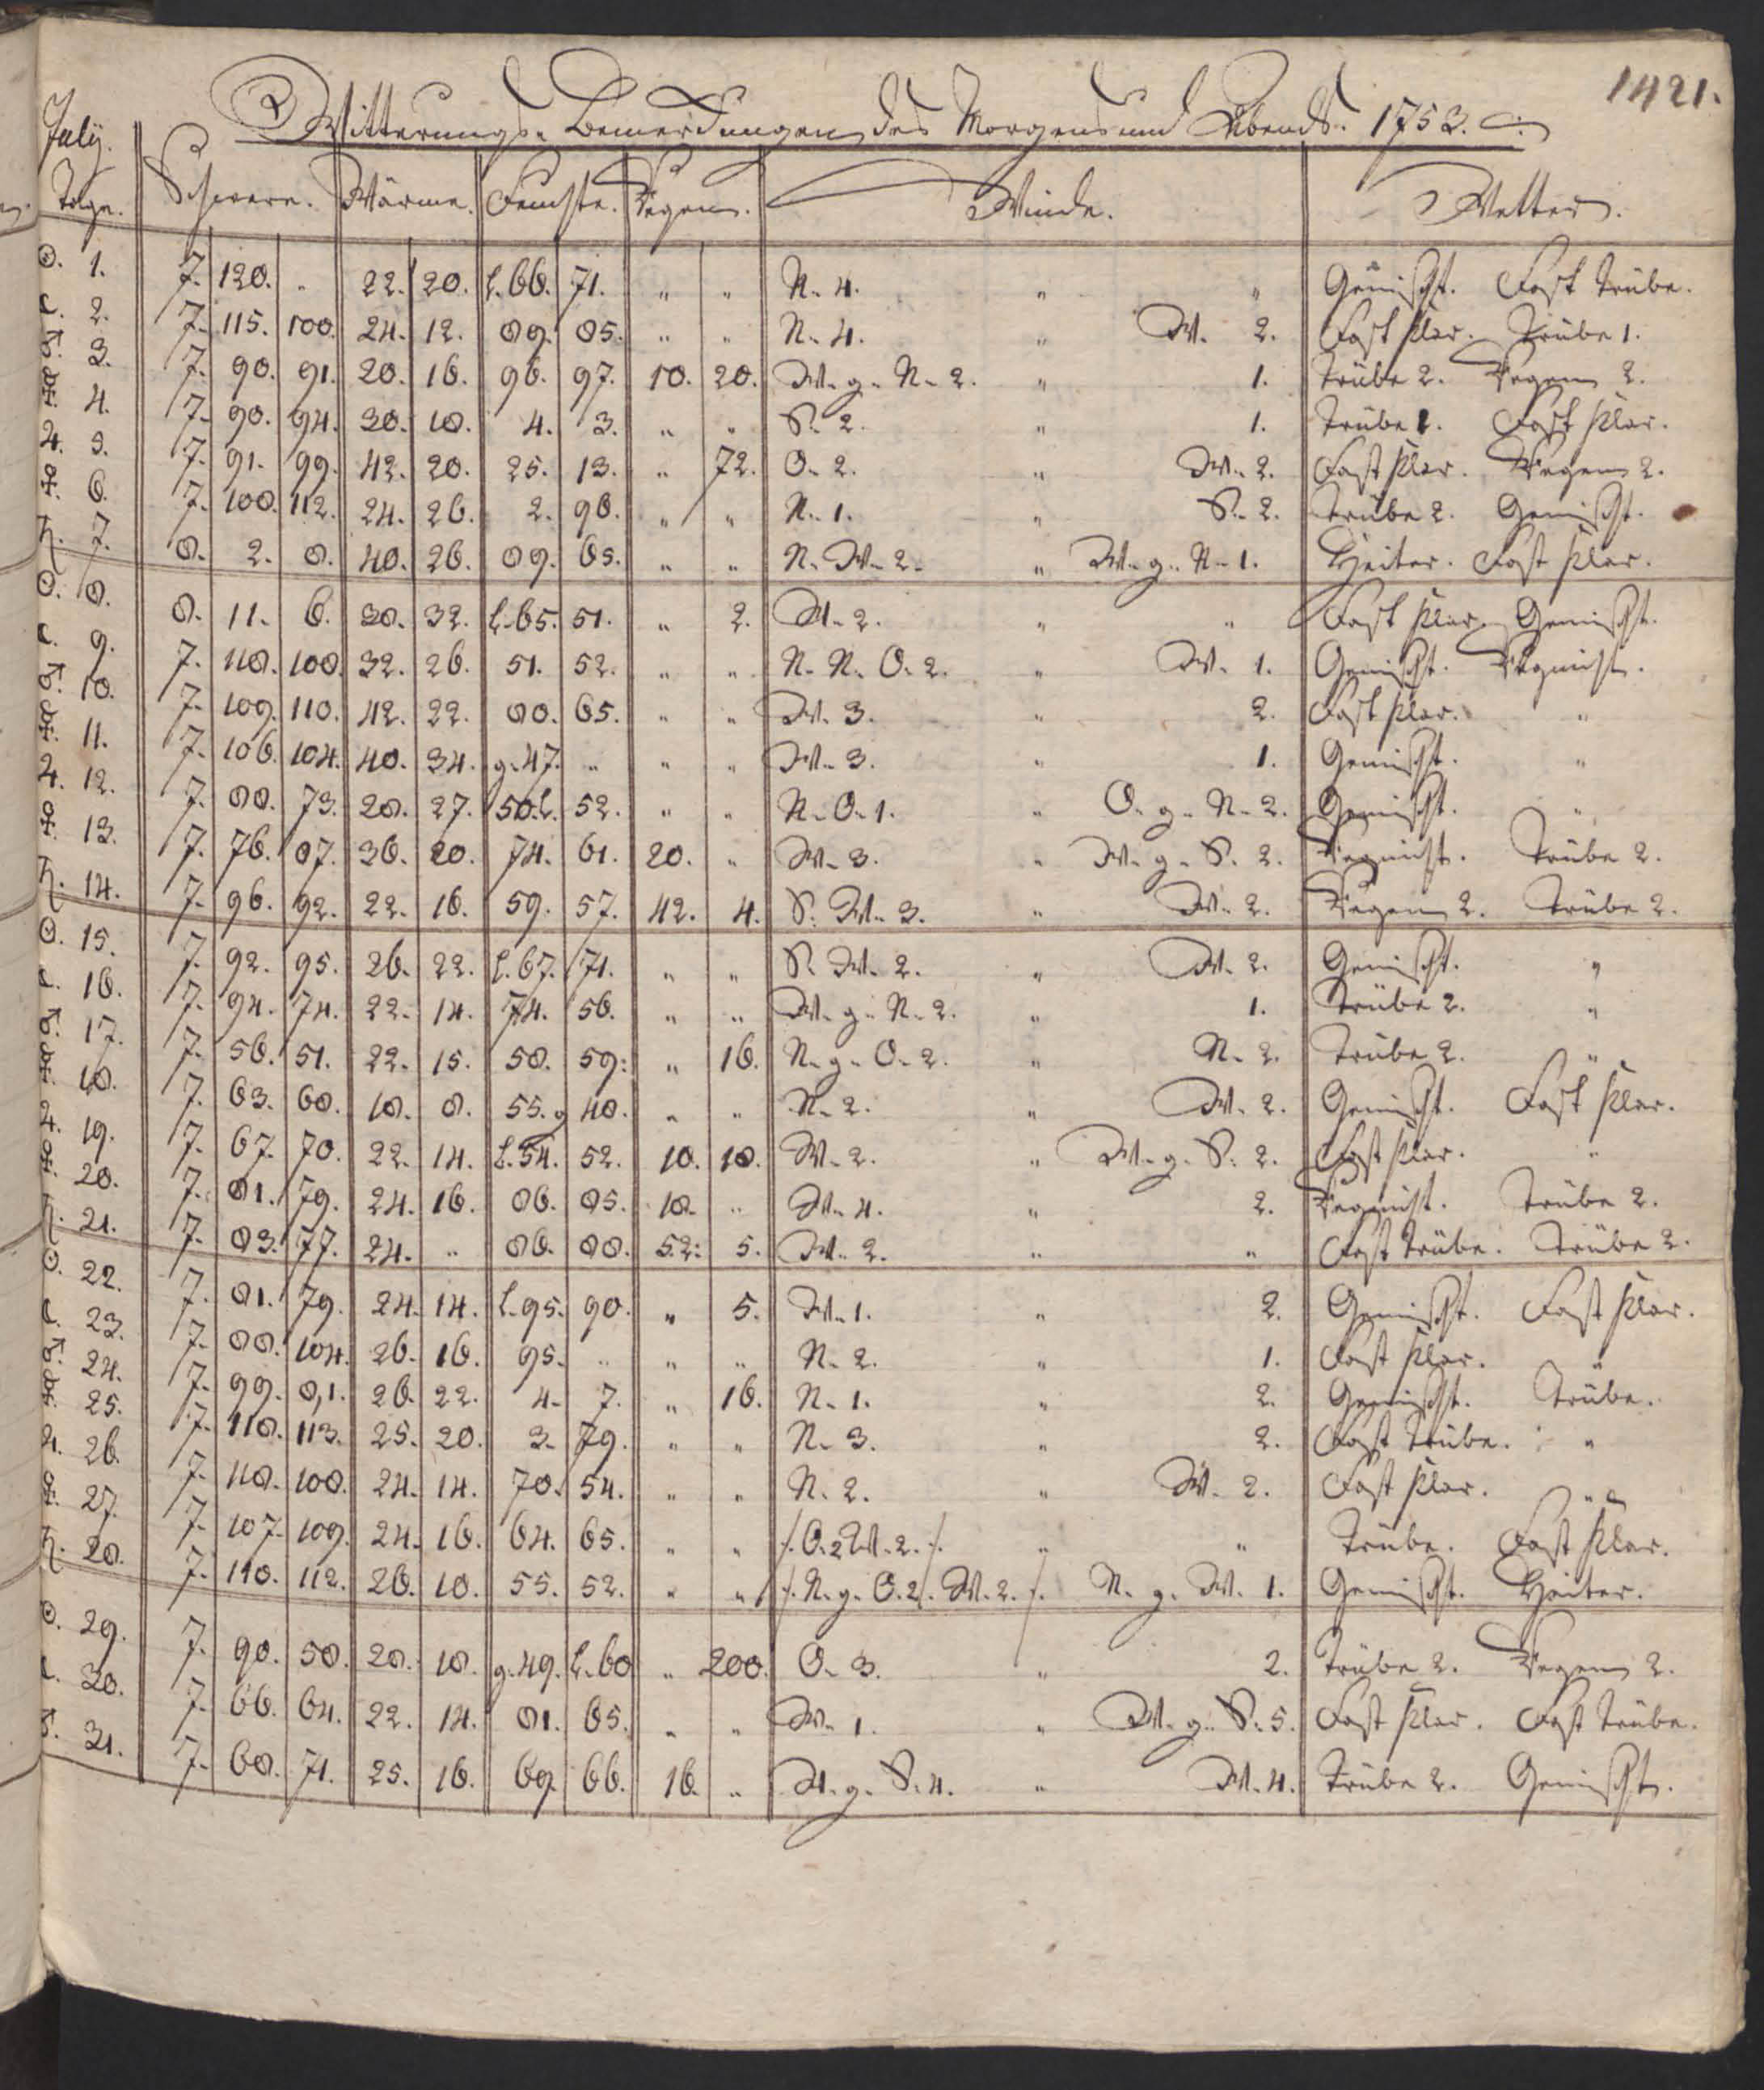 1421.
Witterungs-Bemerckungen des Morgens und Abends. 1753.
July.
Tage. Schwere. Wärme. Feuchte. Regen. Winde. Wetter.
☉. 1. 7. 120. " 22. 20. L. 66. 71. " " N. 4. " " Gemischt. Fast trübe.
☾. 2. 7. 115. 108. 24. 12. 89. 85. " " N. 4. " W. 2. Fast klar. Trübe 1.
♂. 3. 7. 90. 91. 20. 16. 96. 97. 10. 20. W. g. N. 2. " 1. Trübe 2. Regen 2.
☿. 4. 7. 90. 94. 30. 18. 4. 3. " " S. 2. " 1. Trübe 1. Fast klar.
♃. 5. 7. 91. 99. 42. 20. 25. 13. " 72. O. 2. " W. 2. Fast klar. Regen 2.
♀. 6. 7. 108. 112. 24. 26. 2. 98. " " N. 1. " S. 2. Trübe 2. Gemischt.
♄. 7. 8. 2. 8. 40. 26. 89. 65. " " N. W. 2. " W. g. N. 1. Heiter. Fast klar.
☉. 8. 8. 11. 6. 30. 32. L. 65. 51. " 2. W. 2. " " Fast klar. Gemischt.
☾. 9. 7. 118. 108. 32. 26. 51. 52. " " N. N. O. 2. " W. 1. Gemischt. Regnicht.
♂. 10. 7. 109. 110. 42. 22. 80. 65. " " W. 3. " 2. Fast klar. "
☿. 11. 7. 106. 104. 40. 34. g. 47. " " " W. 3. " 1. Gemischt. "
♃. 12. 7. 88. 73. 28. 27. 50. L. 52. " " N. O. 1. " O. g. N. 2. Gemischt. "
♀. 13. 7. 76. 87. 36. 20. 74. 61. 20. " W. 3. " W. g. S. 2. Regnicht. Trübe 2.
♄. 14. 7. 96. 92. 22. 16. 59. 57. 42. 4. S. W. 3. " W. 2. Regen 2. Trübe 2.
☉. 15. 7. 92. 95. 26. 22. L. 67. 71. " " S. W. 2. " W. 2. Gemischt. "
☾. 16. 7. 94. 74. 22. 14. 74. 56. " " W. g. N. 2. " 1. Trübe 2. "
♂. 17. 7. 56. 51. 22. 15. 58. 59: " 16. N. g. O. 2. " N. 2. Trübe 2. "
☿. 18. 7. 63. 68. 18. 8. 55. g 48. " " N. 2. " W. 2. Gemischt. Fast klar.
♃. 19. 7. 67. 70. 22. 14. L. 54. 52. 10. 18. W. 2. " W. g. S. 2. Fast klar. "
♀. 20. 7. 81. 79. 24. 16. 86. 85. 18. " W. 4. " 2. Regnicht. Trübe 2.
♄. 21. 7. 83. 77. 24. " 86. 88. 52: 5. W. 2. " " Fast trübe. Trübe 2.
☉. 22. 7. 81. 79. 24. 14. L. 95. 90. " 5. W. 1. " 2. Gemischt. Fast klar.
☾. 23. 7. 88. 104. 26. 16. 95. " " " N. 2. " 1. Fast klar. "
♂. 24. 7. 99. 8,1. 26. 22. 4. 7. " 16. N. 1. " 2. Gemischt. Trübe.
☿. 25. 7. 118. 113. 25. 20. 3. 79. " " N. 3. " 2. Fast trübe. "
♃. 26. 7. 118. 108. 24. 14. 70. 54. " " N. 2. " W. 2. Fast klar. "
♀. 27. 7. 107. 109. 24. 16. 64. 65. " " /. O. 2 W. 2. /. " " Trübe. Fast klar.
♄. 28. 7. 110. 112. 26. 18. 55. 52. " " /. N. g. O. 2/. W. 2. /. N. g. W. 1. Gemischt. Heiter.
☉. 29. 7. 90. 58. 28. 18. g. 49. L. 60 " 200. O. 3. " 2. Trübe 2. Regen 2.
☾. 30. 7. 66. 64. 22. 14. 81. 65. " " W. 1. " W. g. S. 5. Fast klar. Fast trübe.
♂. 31. 7. 68. 71. 25. 16. 69. 66. 16. " W. g. S. 4. " W. 4. Trübe 2. Gemischt.